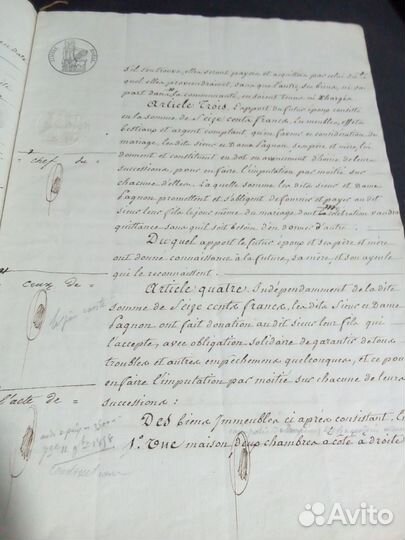 s'il s'en trouve, elles seront payées et acquittées par celui du
quel elles proviendront, sans que l'autre, ses biens, ni sa
part dans la communauté, en soient tenus ni chargés.
Article Trois. L'apport du futur époux consiste
en la somme de Seize cents francs, en meubles, effets
bestiaux et argent comptant, qu'en faveur et considération de
mariage, les dits Sieur et Dame Pagnon, ses père et mère, lui
donnent et constituent en dot en avancement d'hoirie de leurs
successions, pour en faire l'imputation par moitié sur
chacune d'elles. Laquelle somme les dits Sieur et Dame
Pagnon promettent et s'obligent de fournir et payer au dit
Sieur leur fils le jour même du mariage dont la célébration vaudra
quittance sans qu'il soit besoin d'en donner d'autre.
Duquel apport le futur époux et ses père et mère
ont donné connaissance à la future, sa mère, et son ayeule
qui le reconnaissent.
Article quatre. Indépendamment de la dite
somme de Seize cents francs, les dits Sieur et Dame
Pagnon ont fait donation au dit Sieur leur fils qui
l'accepte, avec obligation solidaire de garantir de tous
troubles et autres empêchemens quelconques, et ce pour
en faire l'imputation par moitié sur chacune de leurs
successions:
Des biens Immeubles ci après consistant:
1º. Une maison, deux chambres à côté à droite
chef du
ceux de
l'acte de
Avito